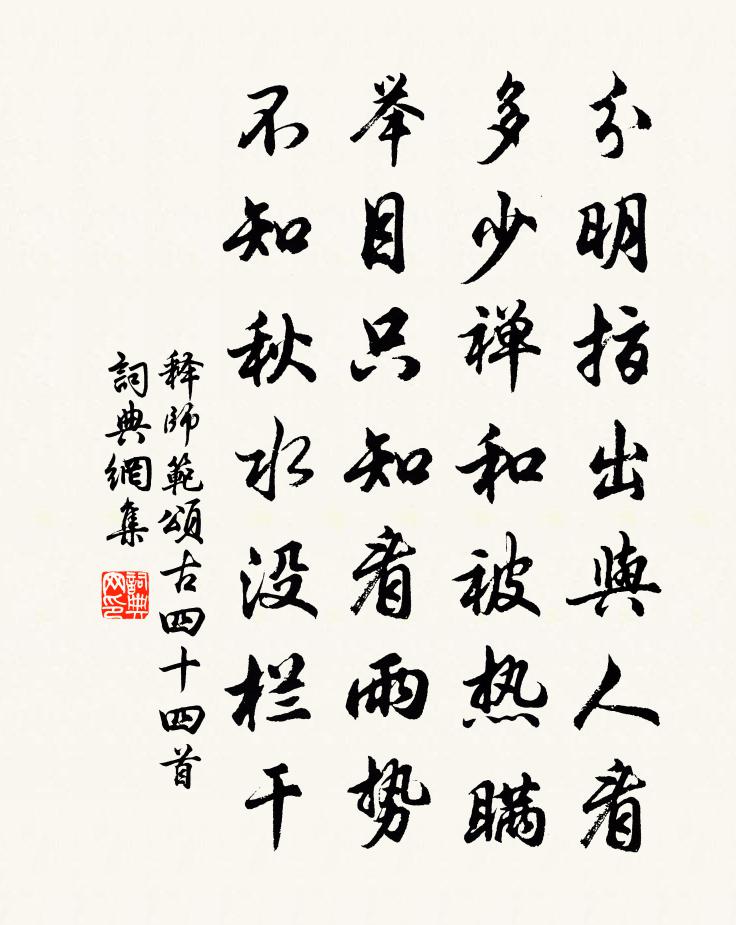 分明指出與人看
多少禅和被热瞒
举目只知看雨势
不知秋水没栏干
释師範頌古四十四首
詞典網集
詞典网印